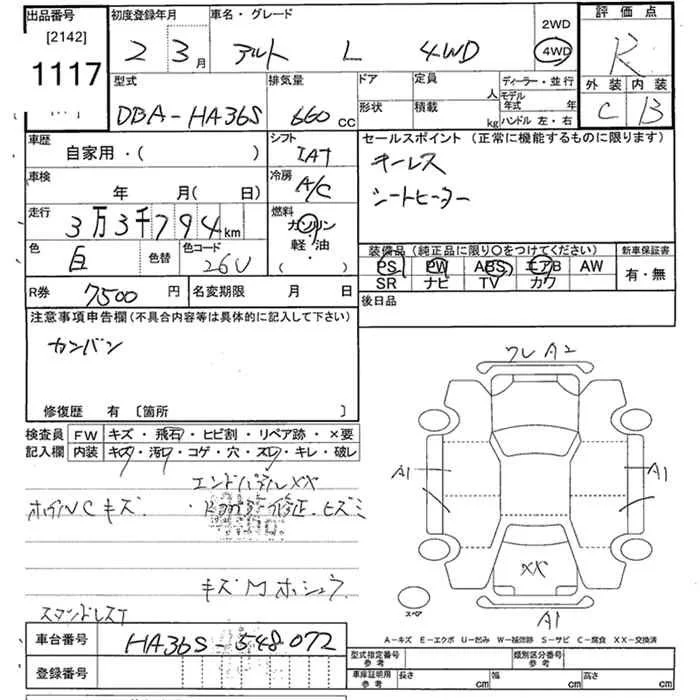 出品番号
[2142]
1117
初度登録年月
2 3月
車名・グレード
アルト L 4WD
2WD
4WD
評価点
R
外装 内装
C B
型式
DBA-HA36S
排気量
660 cc
ドア
形状
定員
人
積載
kg
ディーラー・並行
モデル年式 年
ハンドル 左・右
車歴
自家用・( )
シフト
IAT
車検
年 月( 日)
冷房
A/C
走行
3万3千794km
燃料
ガソリン
軽・油
( ・ )
色
白
色替
色コード
26U
セールスポイント (正常に機能するものに限ります)
キーレス
シートヒーター
装備品 (純正品に限り○をつけてください)
PS PW ABS エアB AW
SR ナビ TV カワ
新車保証書
有・無
R券
7500円
名変期限 月 日
後日品
注意事項申告欄(不具合内容等は具体的に記入して下さい)
カンバン
修復歴 有 〔箇所 〕
検査員記入欄
FW キズ・飛石・ヒビ割・リペア跡・×要
内装 キズ・汚レ・コゲ・穴・スレ・キレ・破レ
エンドパネルXX
ホイルCキズ
修正、ヒズミ
キズM ホシュウ
スタンドレスT
ワレ A2
A1
A1
XX
A1
スペア
A-キズ E-エクボ U-凹み W-補修跡 S-サビ C-腐食 XX-交換済
車台番号
HA36S-548072
登録番号
型式指定番号
参考
類別区分番号
参考
車庫証明用
参考
長さ cm
幅 cm
高さ cm